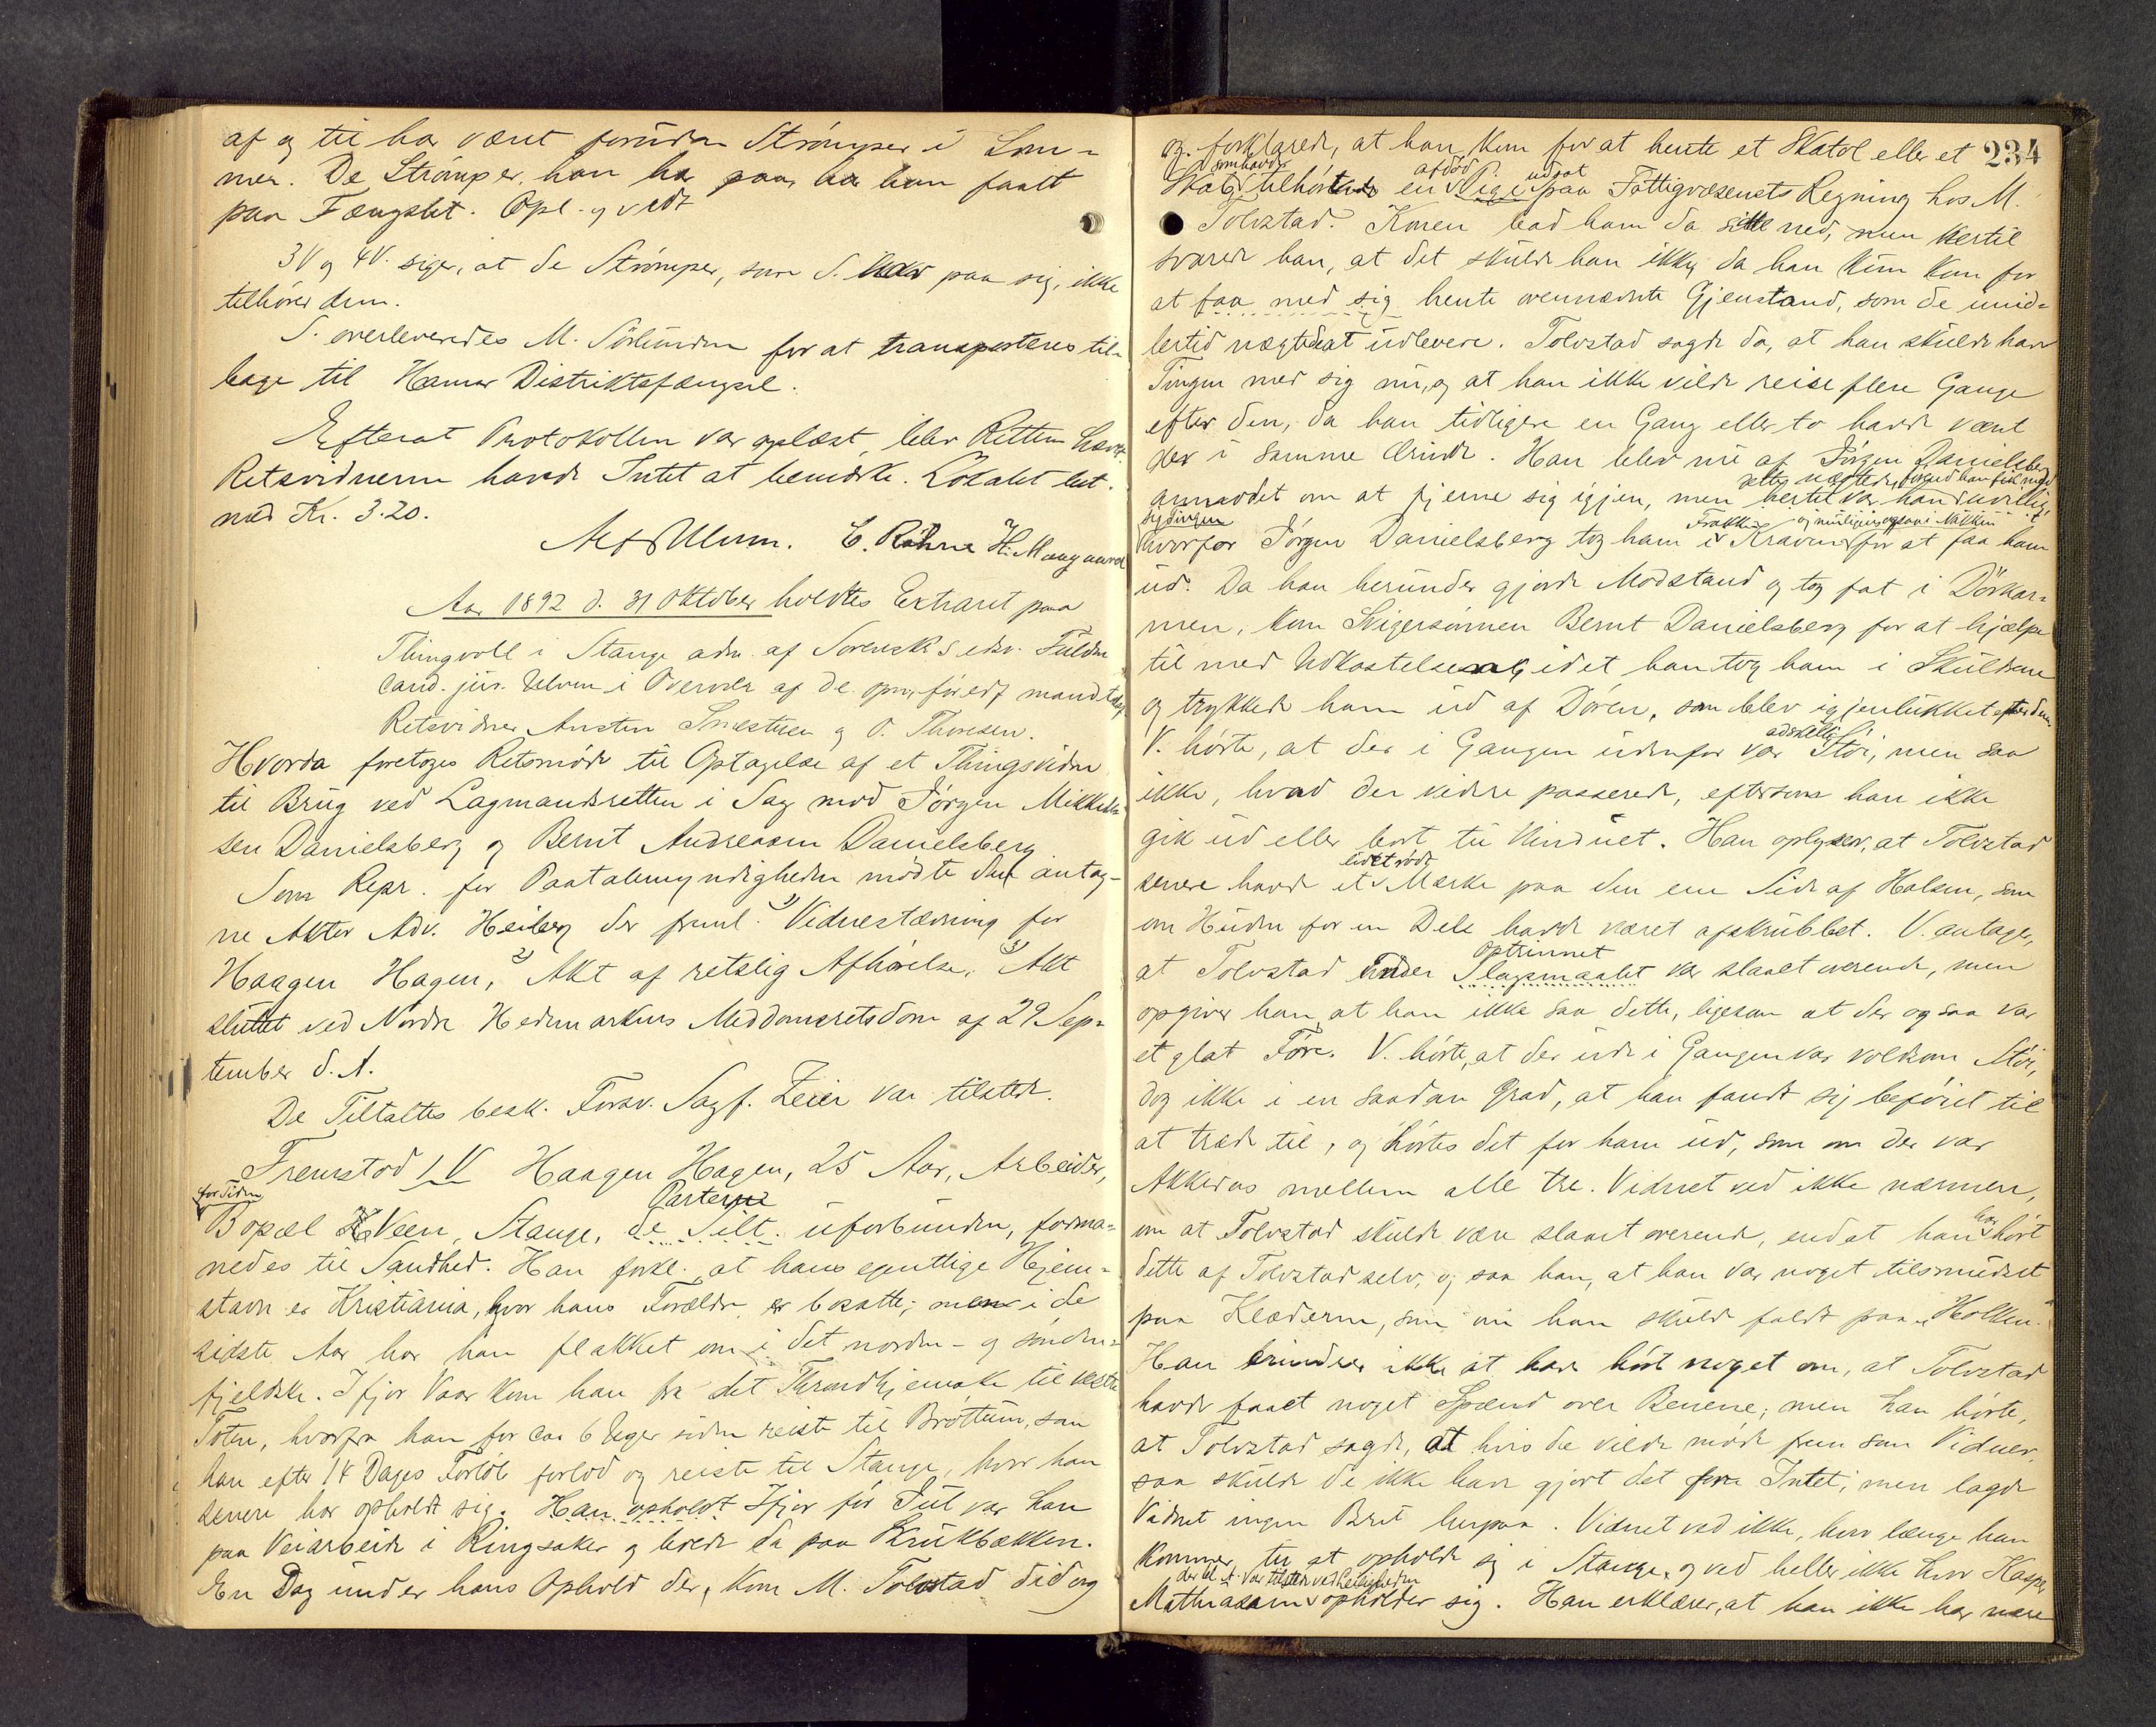 af og til har været foruden Strømper i Lom-
men. De Strømper, han har paa, har han faaet
paa Fængslet. Opl. og vedt
3V og 4V. siger, at de Strømper, som S. har paa sig, ikke
tilhører dem.
S. overleveredes M. Sörlunden for at transporteres til-
bage til Hamar Distriktsfængsel.
Efterat Protokollen var oplæst, blev Retten hævet.
Retsvidnerne havde Intet at bemærke. Lokalet bet.
med Kr. 3.20.
Alf Ulven. E. Røhne H. Mangaard
Aar 1892 d. 31 Oktober holdtes Extraret paa
Thingvoll i Stange adm. af Sorensk. s edsv. Fuldm
Cand. jur. Ulven i Overvær af de opn. før edf mandtagf
Retsvidner Austin Smestuen og O. Thoresen.
Hvorda foretoges Retsmøde til Optagelse af et Thingsvidne
til Brug ved Lagmandsretten i Sag mod Jørgen Mikkel-
sen Danielsberg og Bernt Andreasen Danielsberg
Som Repr. for Paatalemyndigheden mødte den antag-
ne Aktor Adv. Heiberg der freml. 1) Vidnestævning for
Haagen Hagen, 2) Akt af retslig Afhørelse, 3) Akt
sluttet ved Nordre Hedemarkens Meddomsretsdom af 29 Sep-
tember d. A.
De Tiltaltes besk. Forsv. Sagf. Zeier var tilstede.
Fremstod 1 V Haagen Hagen, 25 Aar, Arbeider,
for Tiden Parterne
Bopæl Veen, Stange, de Tilt. uforbunden, forma-
nedes til Sandhed. Han forkl. at hans egentlige Hjem-
stavn er Kristiania, hvor hans Forældre er bosatte; men i de
sidste Aar har han flakket om i det norden- og sønden-
fjeldske. Ifjor Vaar kom han fra det Throndhjemske til vestre
Toten, hvorfra han for ca 6 Uger siden reiste til Brøttum, som
han efter 14 Dages Forløb forlod og reiste til Stange, hvor han
senere har opholdt sig. Han opholdt Ifjor før Jul var han
paa Veiarbeide i Ringsaker og boede da paa Krukbækken.
En Dag under hans Ophold der, kom M. Tolvstad did og
234
og forklarede, at han kom for at hente et Skatol eller et
somhavde afdød udsat
Skab tilhørt en Pige paa Fattigvæsenets Regning hos M.
Tolvstad. Konen bad ham da sitte ned, men hertil
svarede han, at det skulde han ikke, da han kun kom for
at faa med sig hente ovennævnte Gjenstand, som de imid-
lertid nægtede at udlevere. Tolvstad sagde da, at han skulde have
Tingen med sig nu, og at han ikke vilde reise flere Gange
efter den, da han tidligere en Gang eller to havde været
der i samme Ærinde. Han blev nu af Jørgen Danielsberg
dette nægtede, forend han fik med
anmodet om at fjerne sig igjen, men hertil var han uvillig,
sig Tingen Frakke- og muligens ogsaa i Nakken
hvorfor Jørgen Danielsberg tog ham i Kraven for at faa ham
ud. Da han herunder gjorde Modstand og tog fat i Dørkar-
men, kom Svigersønnen Bernt Danielsberg for at hjælpe
til med Udkastelsen, idet han tog ham i Skuldrene
og trykkede ham ud af Døren, som blev igjenlukket efter dem.
adskellig
V. hørte, at der i Gangen udenfor var Støi, men saa
ikke, hvad der videre passerede, eftersom han ikke
gik ud eller bort til Vinduet. Han oplyser, at Tolvstad
lidet rødt
senere havde et Mærke paa den ene Side af Halsen, som
om Huden for en Dels havde været afskrubbet. V. antager,
Optrinnet
at Tolvstad under Slagsmaalet var slaaet overende, men
opgiver han, at han ikke saa dette, ligesom at der ogsaa var
et glat Føre. V. hørte, at der ude i Gangen var voldsom Støi,
dog ikke i en saadan Grad, at han fandt sig beføiet til
at træde til, og hørtes det for ham ud, som om der var
Akkedas mellem alle tre. Vidnet ved ikke nærmere,
har
om at Tolvstad skulde være slaaet overende, end at han hørt
dette af Tolvstad selv, og saa han, at han var noget tilsmudset
paa Klæderne, som om han skulde faldt paa "Holken."
Han erindrer ikke at have hørt noget om, at Tolvstad
havde faaet noget Spænd over Benene; men han hørte,
at Tolvstad sagde, at hvis de vilde møde frem som Vidner,
saa skulde de ikke have gjort det for Intet; men lagde
Vidnet ingen Bret herpaa. Vidnet ved ikke, hvor længe han
kommer til at opholde sig i Stange, og ved heller ikke hvor Kasper
der bl. A. var tilstede ved Leiligheden
Mathiasen opholder sig. Han erklærer, at han ikke har mere